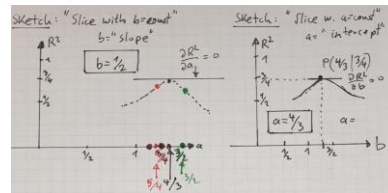 Sketch: "Slice with b=const"
b="slope"
R²
b=1/2
∂R²/∂a = 0
1
3/4
1/2
1/2
1
3/2
a
5/4
4/3
3/2
Sketch: "Slice w. a=const"
a="intercept"
R²
P(4/3|3/4)
∂R²/∂b = 0
1
3/4
1/2
a=4/3
a=
1/2
1
3/2
b